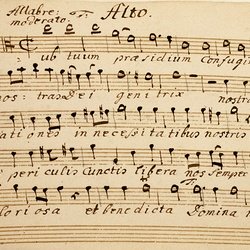 Allabre: Alto.
moderato.
ub tuum præsidium Confugi
nos: tras Dei genitrix nostras
ationes in necessitatibus nostris
periculis Cunctis libera nos semper
loriosa et benedicta Domina